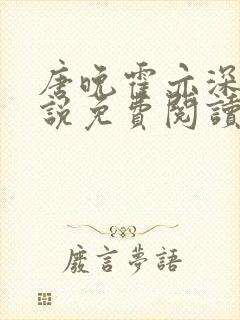 唐晚霍亦深
說免費閱讀
廢言夢語